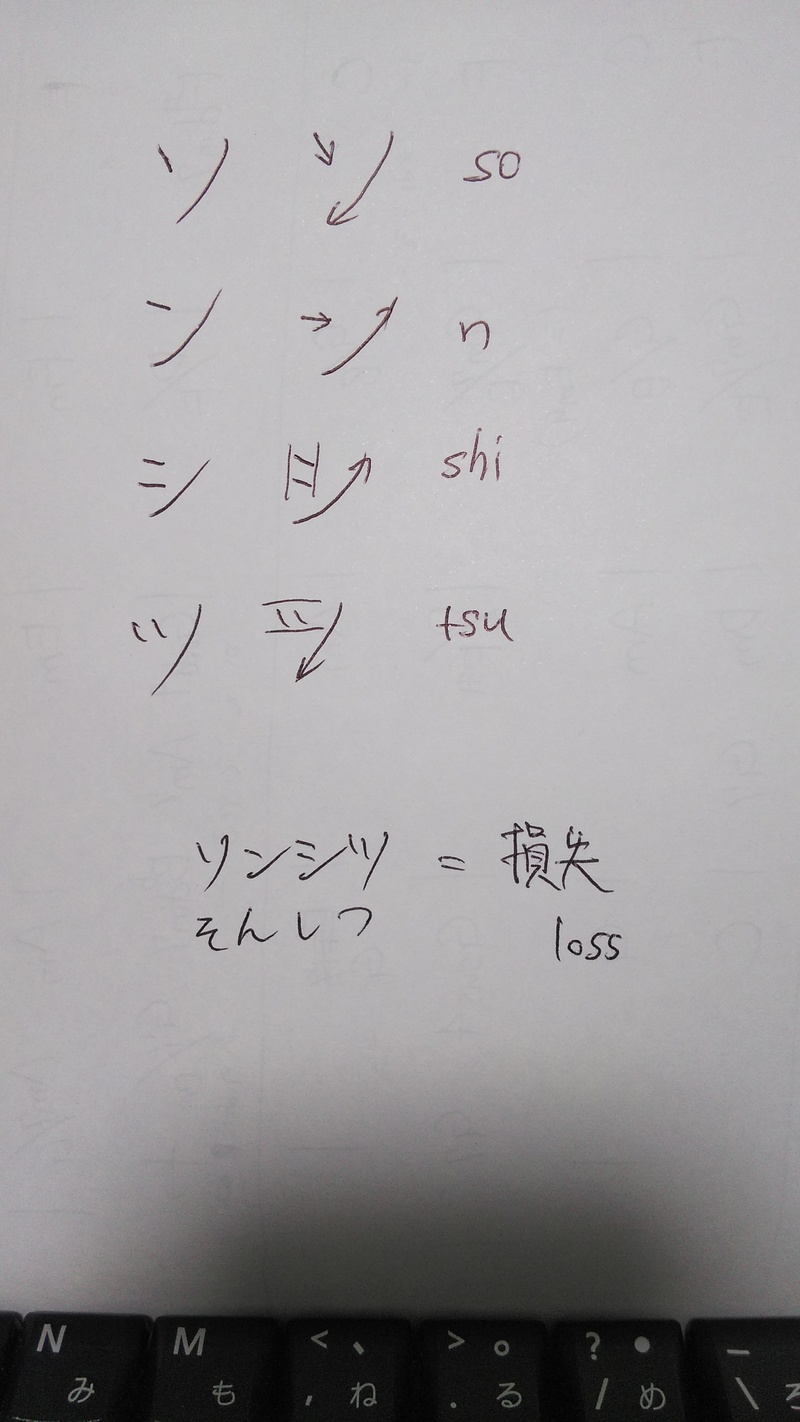 ソ ソ so
ン ン n
シ シ shi
ツ ツ tsu
ソンシツ = 損失
そんしつ loss
N M < 、 > 。 ? ・ _
み も , ね . る / め \ ろ